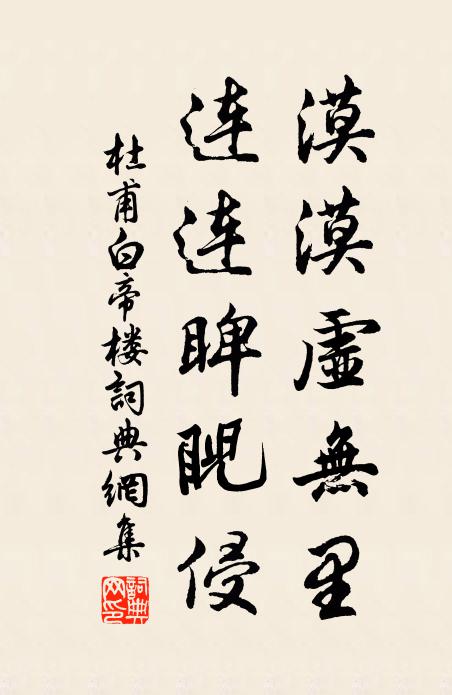 漠漠虛無里
连连睥睨侵
杜甫白帝楼詞典網集
詞典网印